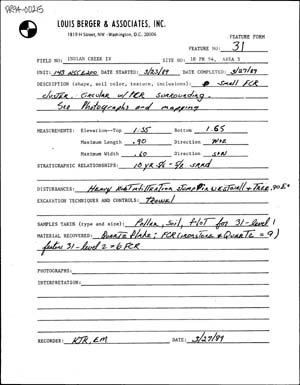 LOUIS BERGER & ASSOCIATES, INC.
1819 H Street, NW · Washington, D.C. 20006
FEATURE FORM
FEATURE NO: 31
FIELD NO: INDIAN CREEK IV SITE NO: 18 PR 94, AREA 3
UNIT: DATE STARTED: 3/23/89 DATE COMPLETED: 3/27/89
DESCRIPTION (shape, soil color, texture, inclusions): Small FCR
cluster. Circular w/ FCR surrounding.
See Photographs and mapping
MEASUREMENTS: Elevation--Top 1.55 Bottom 1.65
Maximum Length .90 Direction
Maximum Width .60 Direction
STRATIGRAPHIC RELATIONSHIPS: 10 YR 5/6 - 5/8 sand
DISTURBANCES: Heavy Root infiltration Stump in West wall + Tree
EXCAVATION TECHNIQUES AND CONTROLS: Trowel
SAMPLES TAKEN (type and size): Pollen, Soil, flot for 31-level 1
MATERIAL RECOVERED: Quartz flake; FCR (ironstone & Quartz = 9)
feature 31-level 2 = 6 FCR
PHOTOGRAPHS:
INTERPRETATION:
RECORDER: KTR, EM DATE: 3/27/89